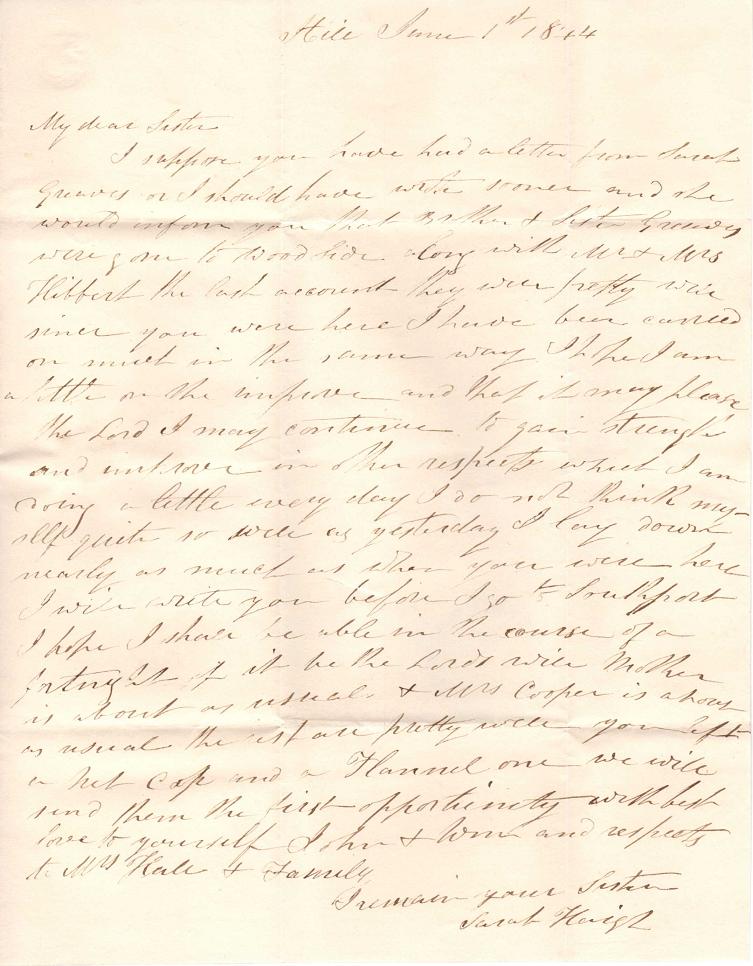 Hill June 1st 1844
My dear Sister
I suppose you have had a letter from Sarah
Greaves or I should have wrote sooner and she
would inform you that Brother & Sister Greaves
were gone to Woodside along with Mr & Mrs
Hibbert the last account they were pretty well
since you were here I have been carried
on much in the same way I hope I am
a little on the improve and that it may please
the Lord I may continue to gain strength
and improve in other respects which I am
doing a little every day I do not think my-
self quite so well as yesterday I lay down
nearly as much as when you were here
I will write you before I go to Southport
I hope I shall be able in the course of a
fortnight if it be the Lords will Mother
is about as usual & Mrs Cooper is about
as usual the rest are pretty well you left
a net Cap and a Flannel one we will
send them the first opportunity with best
love to yourself John & Wm and respects
to Mrs Hall & Family
I remain your Sister
Sarah Haigh